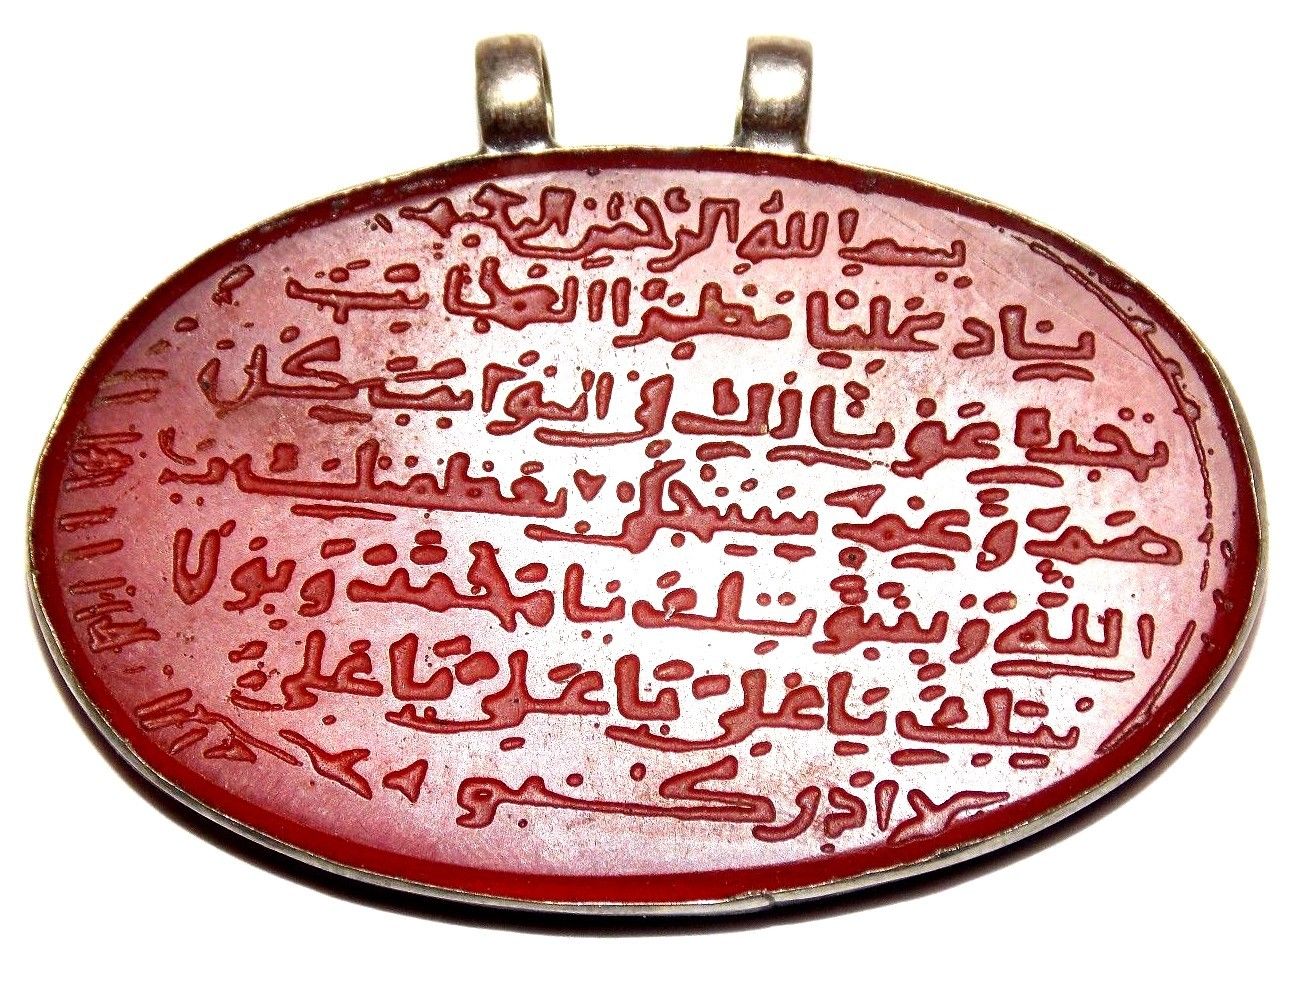 بسم الله الرحمن الرحيم
ناد عليا مظهر العجائب
تجده عونا لك في النوائب كل
هم وغم سينجلي بعظمتك
الله وبنبوتك يا محمد وبو
يتك يا علي يا علي يا علي
ادركني